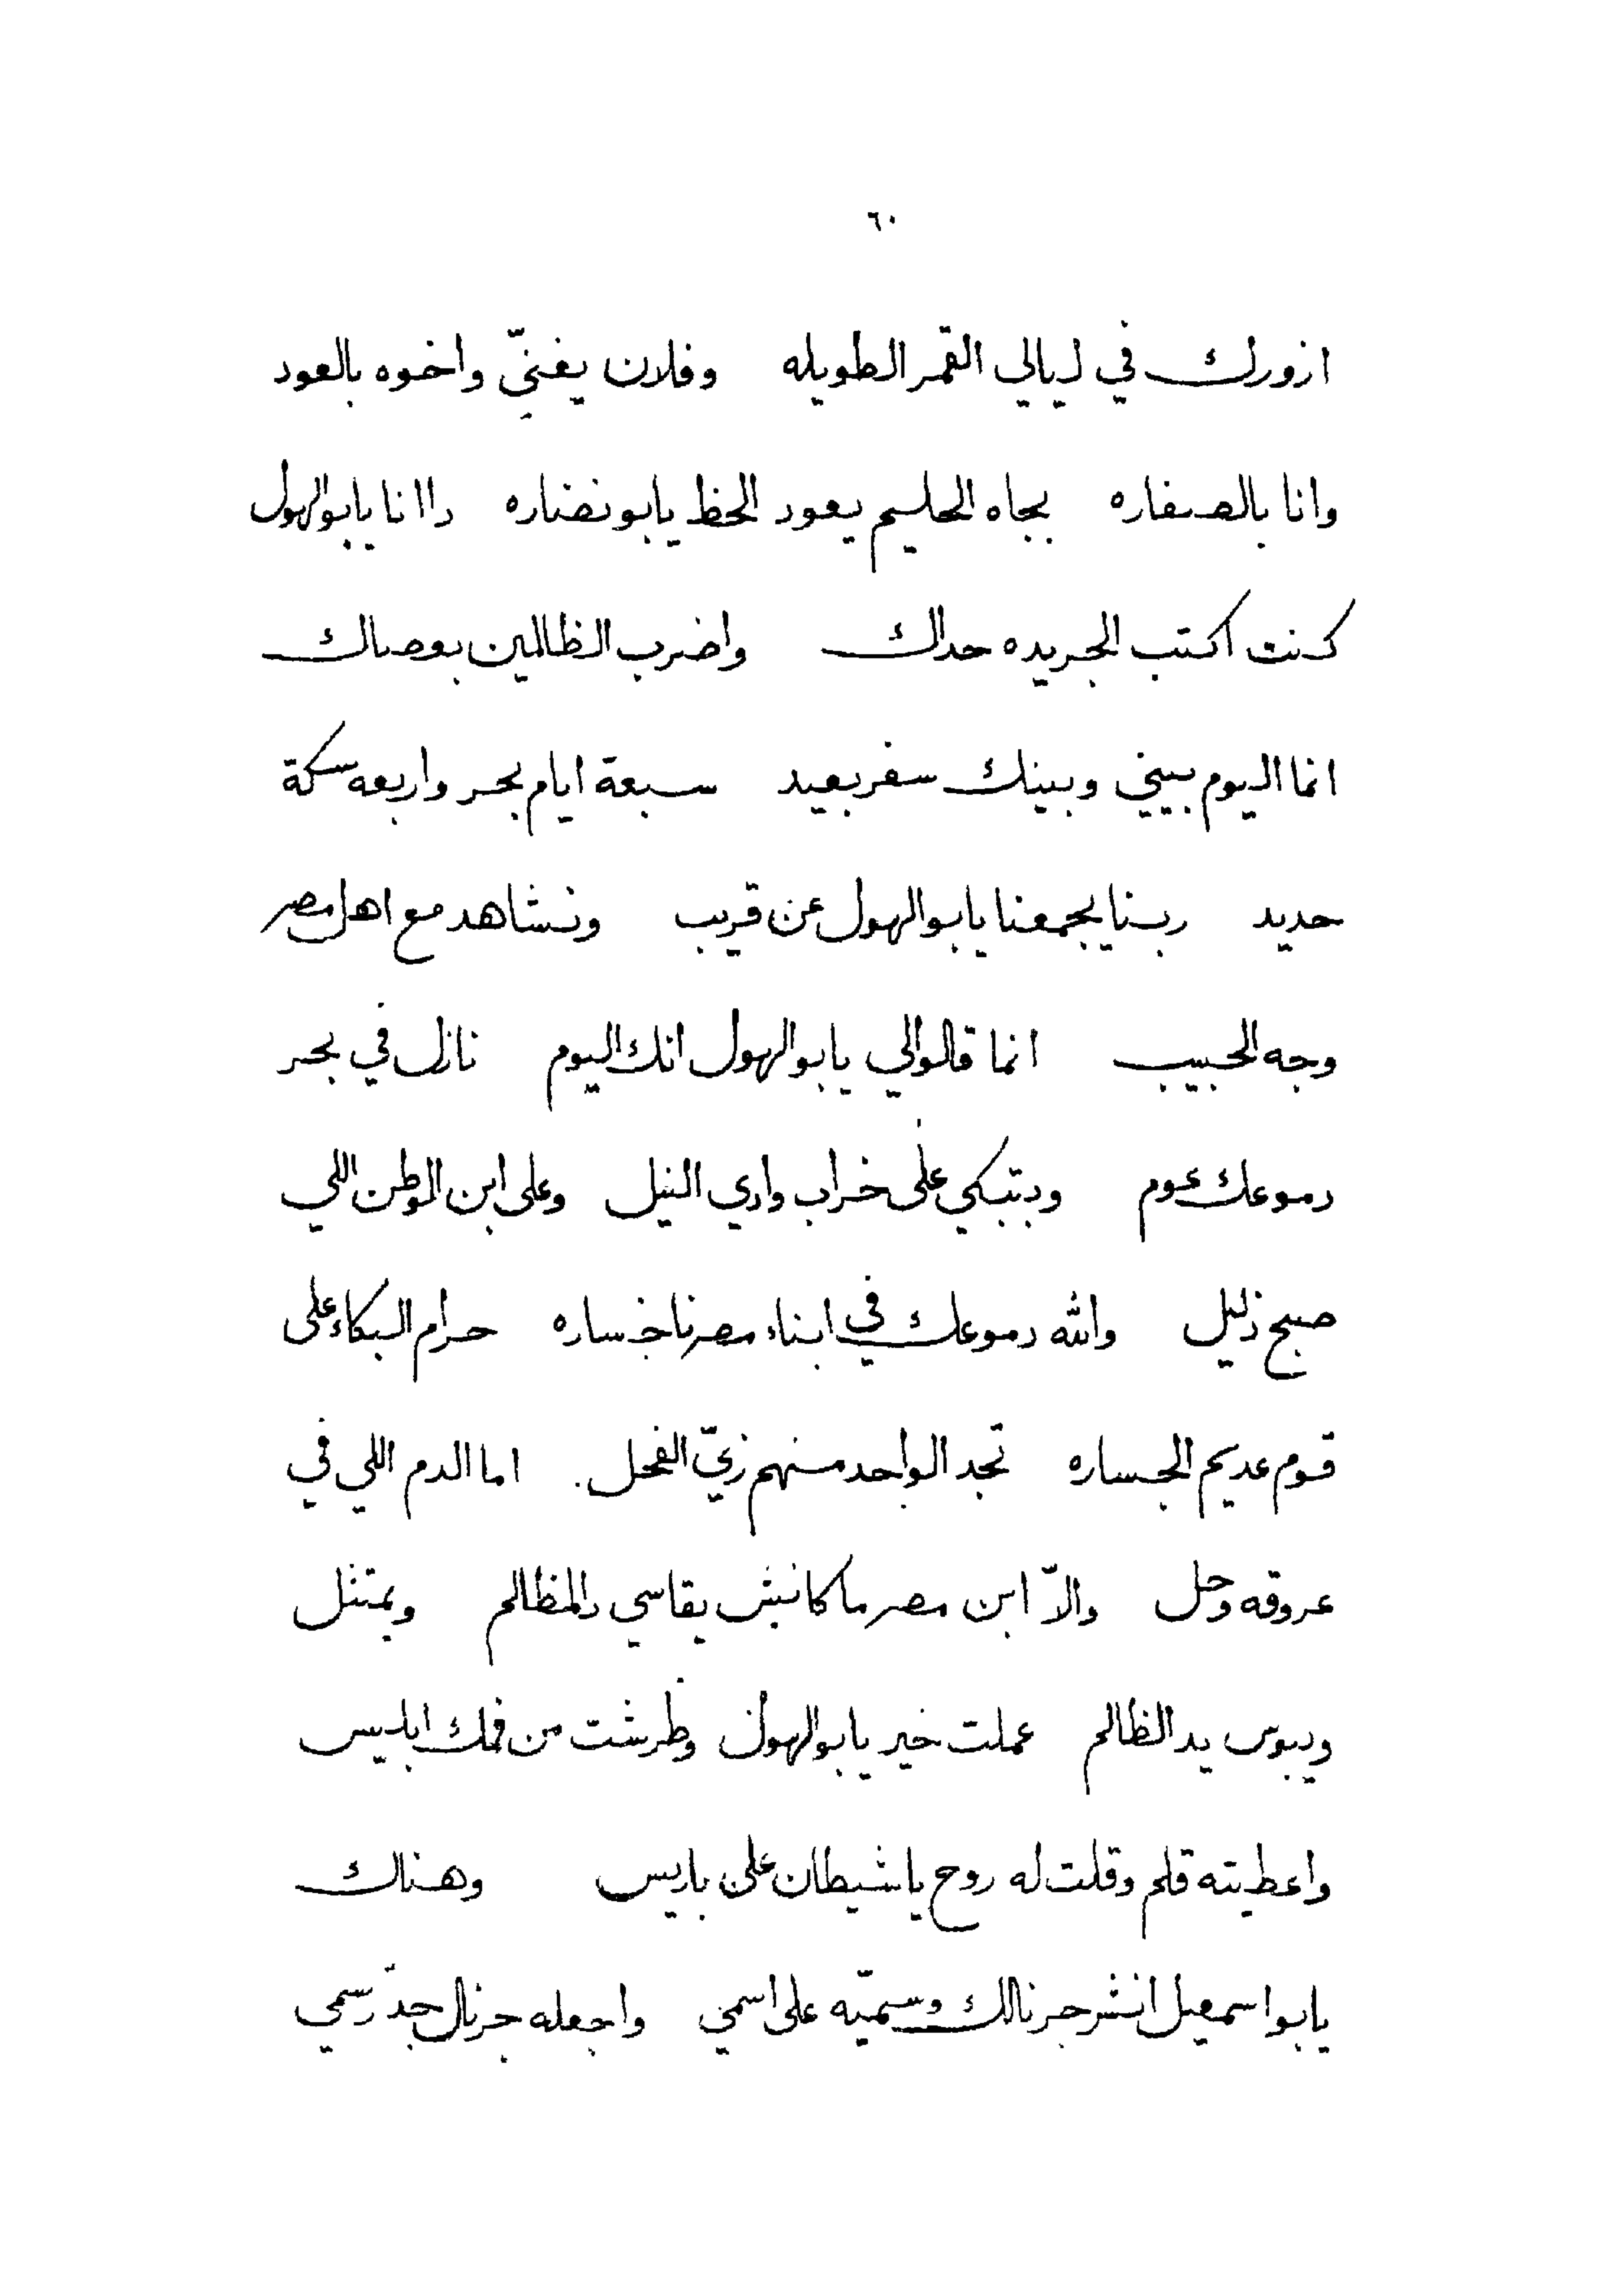 ٦٠
ازورك في ليالي القمر الطويله وفلان يغنيّ واخوه بالعود
وانا بالصفاره بجاه الحليم يعود الحظ يابو نضاره دا انا يابو الهول
كنت اكتب الجريده حداك واضرب الظالمين بعصاك
انما اليوم بيني وبينك سفر بعيد سبعة ايام بحر واربعه سكة
حديد ربنا يجمعنا يابو الهول عن قريب ونشاهد مع اهل مصر
وجه الحبيب انما قالوا لي يابو الهول انك اليوم نازل في بحر
دموعك عوم وبتبكي على خراب وادي النيل وعلى ابن الوطن اللي
صبح ذليل والله دموعك في ابناء مصرنا خساره حرام البكاء على
قوم عديم الجساره تجد الواحد منهم زيّ الفحل. اما الدم اللي في
عروقه وحل والاّ ابن مصر ما كانش يقاسي دالمظالم ويمتثل
ويبوس يد الظالم عملت خير يابو الهول وطرشت من فمك ابليس
واعطيته قلم وقلت له روح يا شيطان على باريس وهناك
يابو اسمعيل انشر جرنالك وسميّه على اسمي واجعله جرنال جدّ رسمي